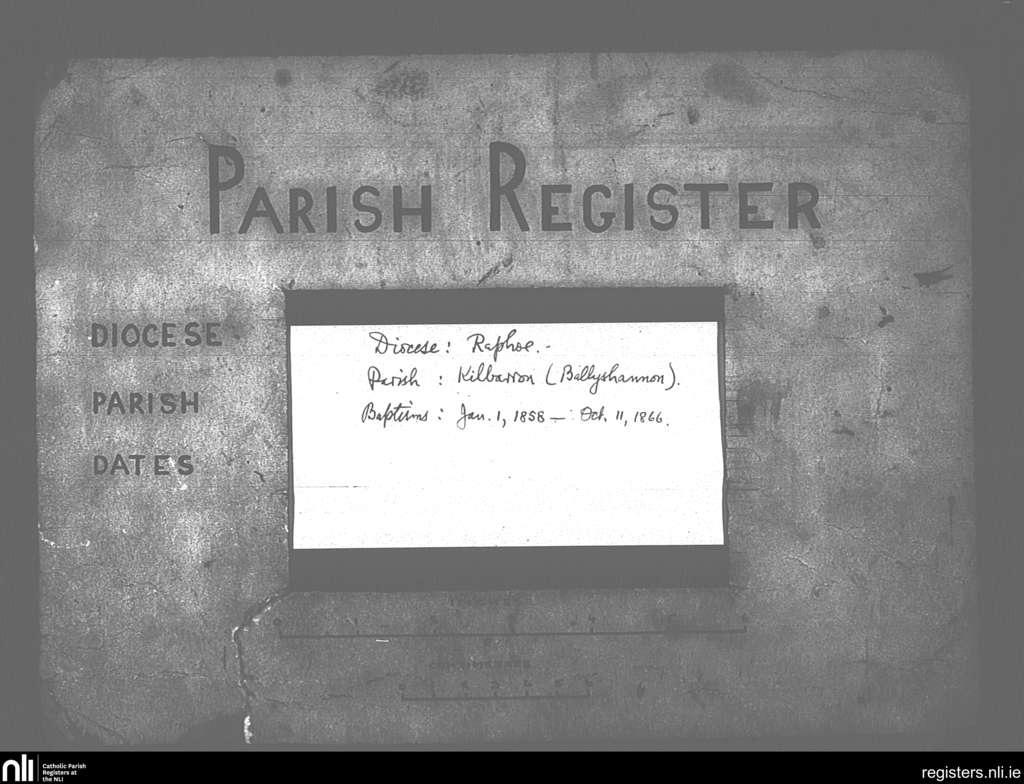 PARISH REGISTER
DIOCESE
PARISH
DATES
Diocese: Raphoe.-
Parish : Kilbarron (Ballyshannon).
Baptisms : Jan. 1, 1858 — Oct. 11, 1866.
CENTIMETRES
nli
Catholic Parish
Registers at
the NLI
registers.nli.ie